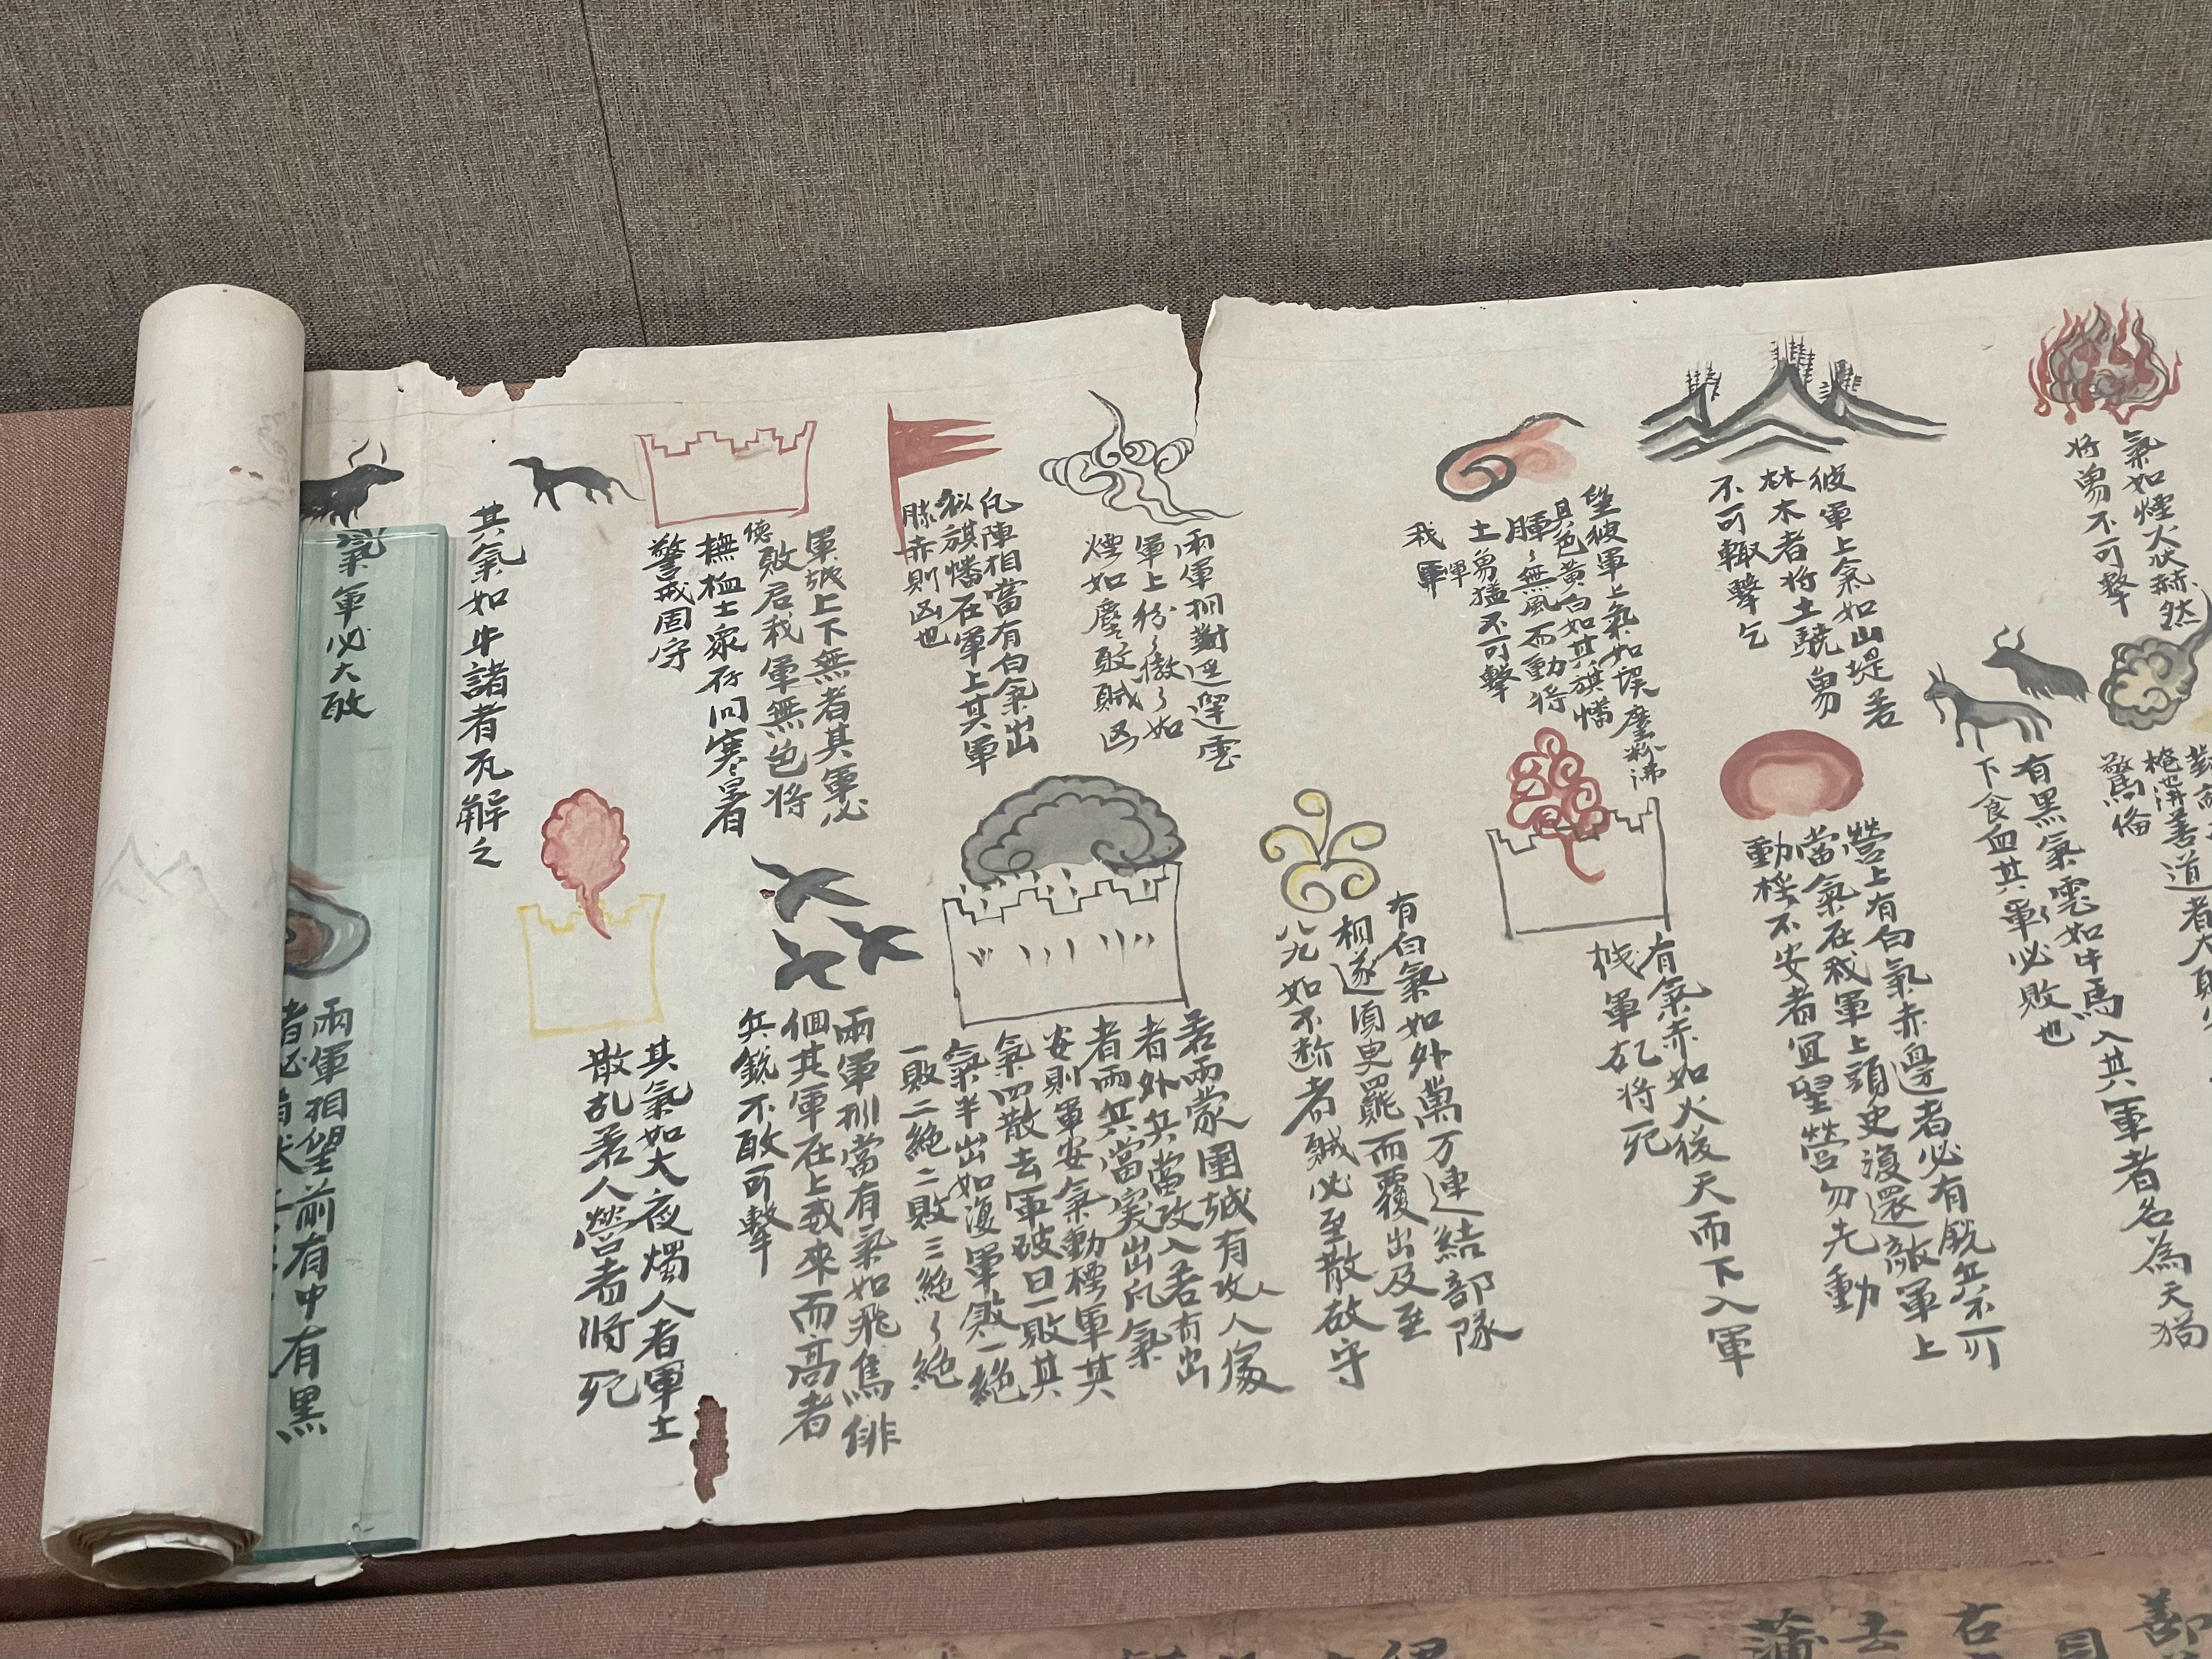 氣如煙火狀赫然
將勇不可擊
彼軍上氣如山堤若
林木者將士驍勇
不可輙擊乞
望彼軍上氣如埃塵粉沸
其色黃白如其旗幡
暉〻無風而動將
士勇猛不可擊
我軍
兩軍相對逕遝雲
軍上紛〻㣲〻如
煙如塵敢賊凶
凡陣相當有白氣出
似旗幡在軍上其軍
勝赤則凶也
軍城上下無者其軍必
敗若我軍無色將
德
撫恤士衆存問寒暑者
警戒固守
其氣如牛諸者瓦解之
氣軍必大敗
驚俻
有黑氣雲如牛馬入其軍者名為天猲
下食血其軍必敗也
營上有白氣赤邊者必有銳兵不可
當氣在我軍上頭史復還敵軍上
動搖不安者宜望營勿先動
有氣赤如火後天而下入軍
城軍亂將死
有白氣如外萬万連結部隊
相遂湏臾羅而覆出及至
八九如不斷者賊必至散故守
若兩蒙圍城有攻人傢
者外兵當攻入若有出
者而兵當突出凡氣
安則軍安氣動摇軍其
氣四散去軍破曰一敗其
氣半出如復軍敗一絕
一敗二絕二敗三絕〻絕
兩軍相當有氣如飛鳥俳
佪其軍在上或來而高者
兵銳不敢可擊
其氣如大夜燭人者軍士
散乱若人營者將死
兩軍相望前有中有黑